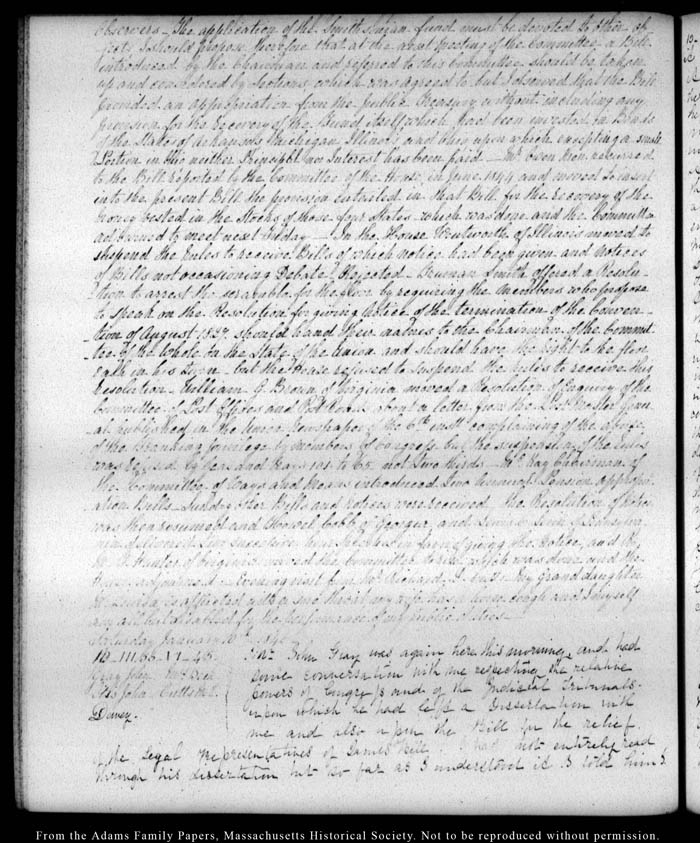 observers. The application of the Smithsonian fund must be devoted to other ob-
jects. I should propose therefore that at the next meeting of the Committee, a Bill
introduced by the Chairman and referred to this Committee should be taken
up and considered by Sections, which was agreed to but I observed that the Bill
provided an appropriation from the public Treasury without including any
provision for the recovery of the Fund itself which had been invested in Bonds
of the States of Arkansas, Michigan Illinois and Ohio upon which excepting a small
portion in the neither Principal nor Interest has been paid — Mr Owen then recurred
to the Bill reported by the Committee of the House in June 1844 and moved to insert
into the present Bill the provision in that Bill for the recovery of the
money vested in the Stocks of those four States which was done and the Committee
adjourned to meet next Friday — In the House Wentworth of Illinois moved to
suspend the rules to receive Bills of which notice had been given and notices
of Bills not occasioning Debate. Rejected — Truman Smith offered a Resolu-
-tion to arrest the scramble for the floor by requiring the members who propose
to speak on the Resolution for giving Notice of the termination of the Conven-
-tion of August 1827 should hand their names to the Chairman of the Commit-
-tee of the whole on the State of the Union and should have the right to the floor
each in his turn — but the House refused to suspend the rules to receive this
Resolution. William G. Brown of Virginia moved a Resolution of Enquiry of the
Committee of Post Offices and Post Roads about a letter from the Post Master Gener-
al published in the Union Newspaper of the 6th inst complaining of the abuse
of the Franking privilege by members of Congress but the suspension of the rules
was refused by yeas and nays 101 to 65 not two thirds — McKay Chairman of
the Committee of Ways and Means introduced two Annual Pension appropri-
-ation Bills. Sundry other Bills and notices were received. The Resolution of Notice
was then resumed and Howell Cobb of Georgia, and Lewis C. Levin of Pennsylva-
nia delivered two successive hour speeches in favor of giving the Notice, and R.
M. T. Hunter of Virginia moved the Committee to rise which was done and the
House adjourned — Evening visit from Mr Richard D. Cutts. My granddaughter
M. Louisa is afflicted with a sore throat my wife has a cough and I myself
am all but disabled for the performance of my public duties.
Saturday January 10th 1846
10. III.66. VI—45.
Gray John
John Cutts R.D.
Davey.
Mr. John Gray was again here this morning, and had
some conversation with me respecting the relative
powers of Congress and of the Judicial Tribunals
upon which he had left a Dissertation with
me and also upon the Bill for the relief
of the Legal Representatives of James Bell. I had not entirely read
through his dissertation but so far as I understood it I told him I
From the Adams Family Papers, Massachusetts Historical Society. Not to be reproduced without permission.